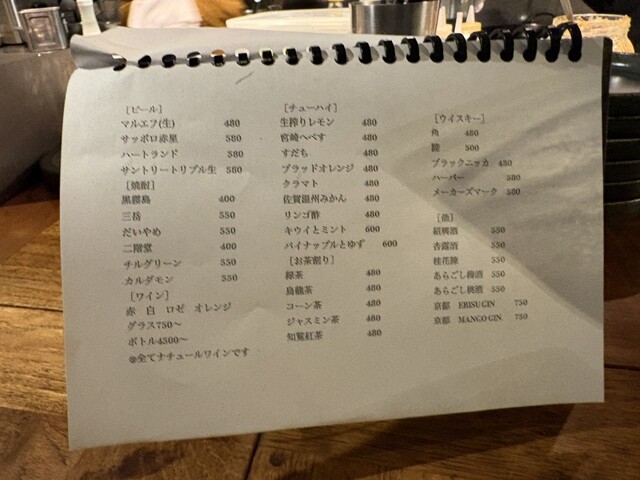 [ビール]
マルエフ(生) 480
サッポロ赤星 580
ハートランド 580
サントリートリプル生 580
[焼酎]
黒霧島 400
三岳 550
だいやめ 550
二階堂 400
チルグリーン 550
カルダモン 550
[ワイン]
赤 白 ロゼ オレンジ
グラス750〜
ボトル4500〜
◎全てナチュールワインです
[チューハイ]
生搾りレモン 480
宮崎へべす 480
すだち 480
ブラッドオレンジ 480
クラマト 480
佐賀温州みかん 480
リンゴ酢 480
キウイとミント 600
パイナップルとゆず 600
[お茶割り]
緑茶 480
烏龍茶 480
コーン茶 480
ジャスミン茶 480
知覧紅茶 480
[ウイスキー]
角 480
陸 500
ブラックニッカ 480
ハーパー 580
メーカーズマーク 580
[他]
紹興酒 550
杏露酒 550
桂花陳 550
あらごし梅酒 550
あらごし桃酒 550
京都 EBISU GIN 750
京都 MANGO GIN 750